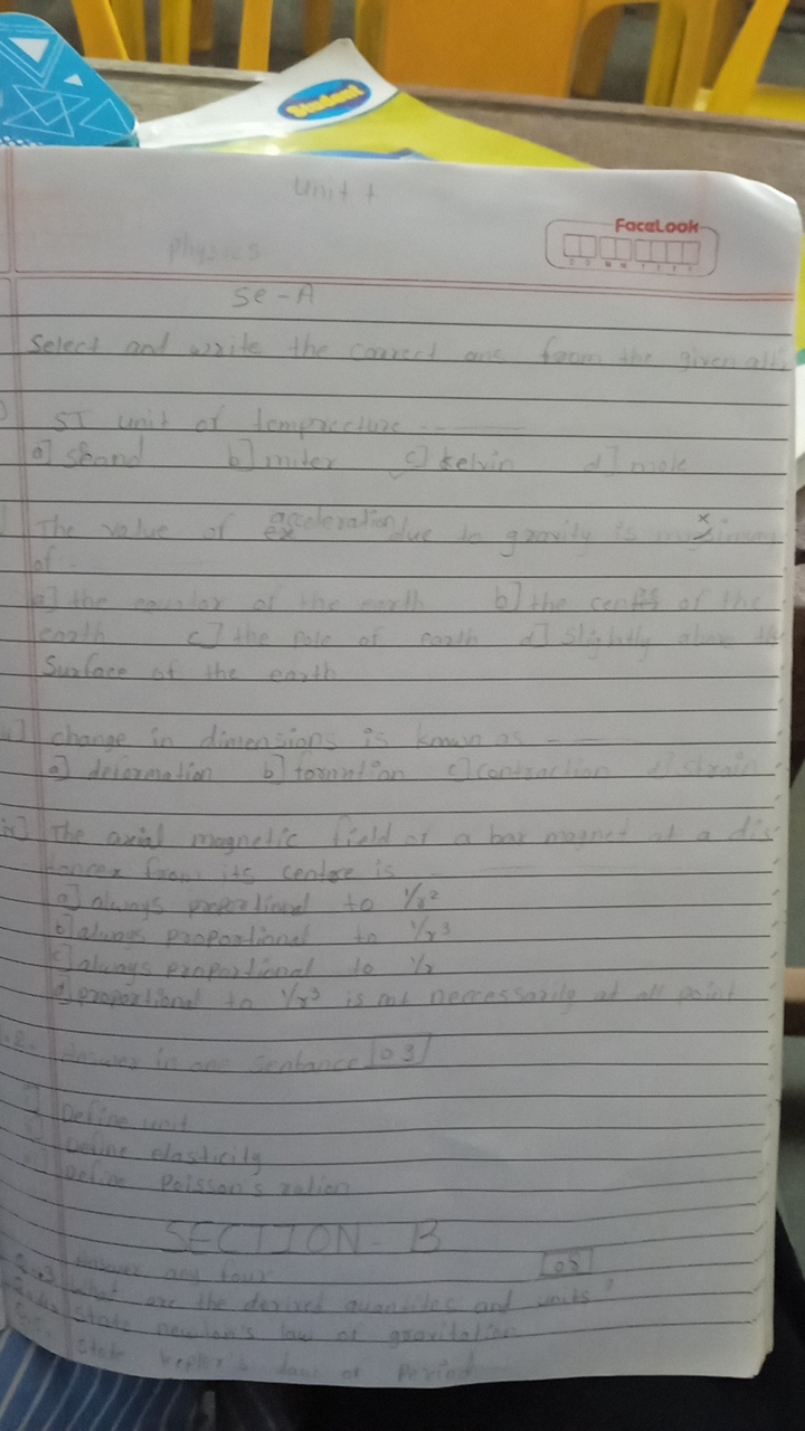 Student
Unit 1
FaceLook
Physics
Se - A
Select and write the correct one from the given alt
SI unit of tempreature
a] skand b] miter c] kelvin d] mole
The value of acceleration due to gravity is maximum
of
a] the equator of the earth b] the centre of the
earth c] the Pole of earth d] slightly above the
Surface of the earth
change in dimensions is known as
a] deformation b] formation c] contraction d] strain
iv] The axial magnetic field of a bar magnet at a dis
tance x from its centere is
a] always proportional to 1/x²
b] always proportional to 1/x³
c] always proportional to 1/x
d] proportional to 1/x³ is not neccessarily at all point
Answer in one Sentance [03]
Define unit
Define elasticity
Define Poisson's ration
SECTION - B
Answer any four [08]
What are the derived quantities and units?
State newton's law of gravitation
State kepler's law of Period